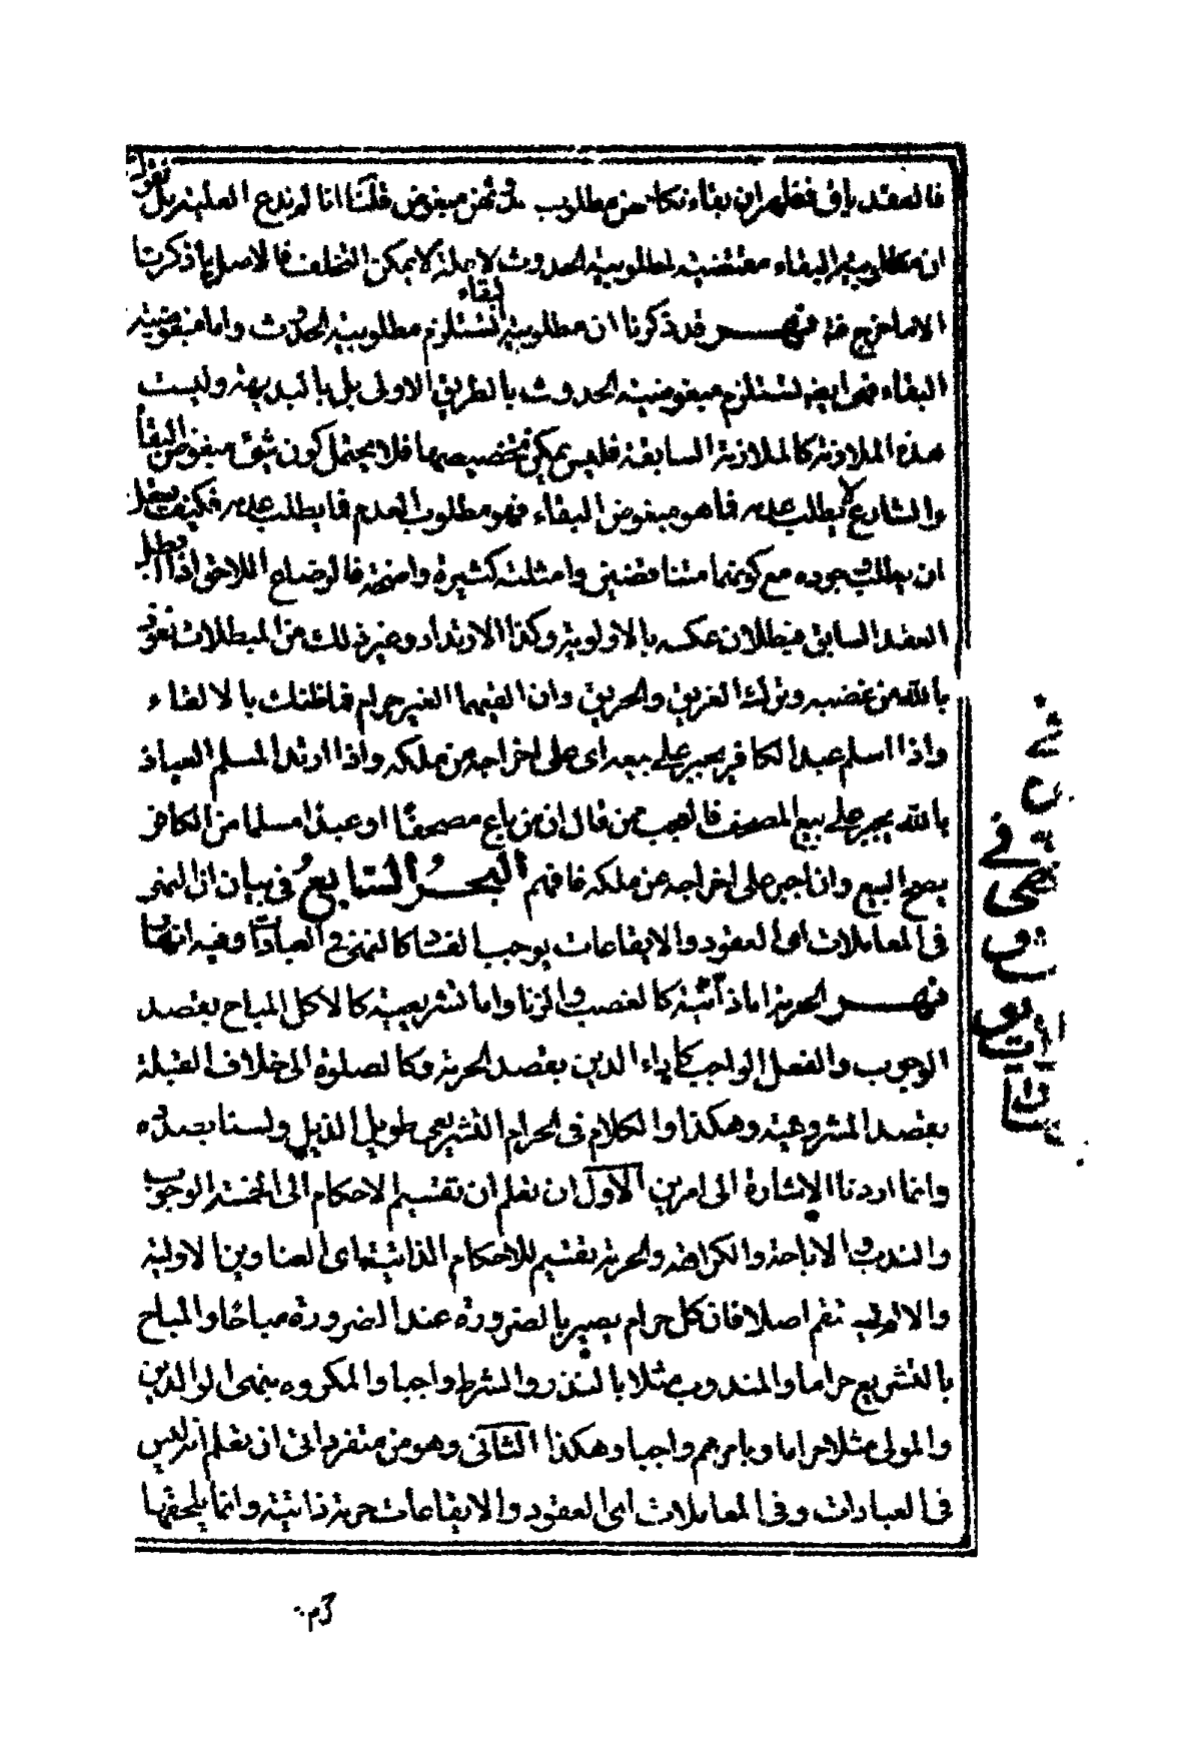 فالعقد باق فظهر ان بقاء نكاحهن مطلوب ثمن مبغوض قلنا انا لم ندع العلية بل نقول
ان مطلوبية البقاء مقتضية لمطلوبية الحدوث لا علة لا يمكن التخلف فالاصل ما ذكرنا
الا ما خرج عنه نهر قد ذكرنا ان مطلوبية البقاء تستلزم مطلوبية الحدوث واما مبغوضية
البقاء فهى ايضا تستلزم مبغوضية الحدوث بالطريق الاولى بل بالبديهة وليست
هذه الملازمة كالملازمة السابقة فليس يمكن تخصيصها فلا يحتمل كون شئ مبغوض البقاء
والشارع لا يطلب عدمه فما هو مبغوض البقاء فهو مطلوب العدم فما يطلب عدمه فكيف يعقل
ان يطلب وجوده مع كونهما متناقضين وامثلته كثيرة واضحة فالرضاع اللاحق اذا ابطل
العقد السابق فبطلان عكسه بالاولوية وكذا الارتداد وغير ذلك من المبطلات نعوذ
بالله من غضبه وترك الغريق والحريق وان القيهما الغير حرام فما ظنك بالالقاء
واذا اسلم عبد الكافر يجبر على بيعه اى على اخراجه من ملكه واذا ارتد المسلم العياذ
بالله يجبر على بيع المصحف فالعجب ممن قال ان من باع مصحفا او عبدا مسلما من الكافر
يصح البيع وان اجبر على اخراجه عن ملكه فافهم البحر السابع في بيان ان النهى
فى المعاملات اى العقود والايقاعات يوجب الفساد كالنهى فى العبادات وفيه انهار
نهر الحرمة اما ذاتية كالغصب والزنا واما تشريعية كالاكل المباح بقصد
الوجوب والفعل الواجب كاداء الدين بقصد الحرمة وكالصلوة الى خلاف القبلة
بقصد المشروعية وهكذا والكلام فى الحرام التشريعى طويل الذيل ولسنا بصدده
وانما اردنا الاشارة الى امرين الاول ان تعلم ان تقسيم الاحكام الى الخمسة الوجوب
والندب والاباحة والكراهة والحرمة تقسيم للاحكام الذاتية اى العناوين الاولية
والا لم يتم اصلا فان كل حرام يصير بالضرورة عند الضرورة مباحا والمباح
بالتشريع حراما والمندوب مثلا بالنذر والشرط واجبا والمكروه بنهى الوالدين
والمولى مثلا حراما وبامرهم واجبا وهكذا الثانى وهو من متفرداتى ان تعلم انه ليس
فى العبادات وفى المعاملات اى العقود والايقاعات حرمة ذاتية وانما يلحقها